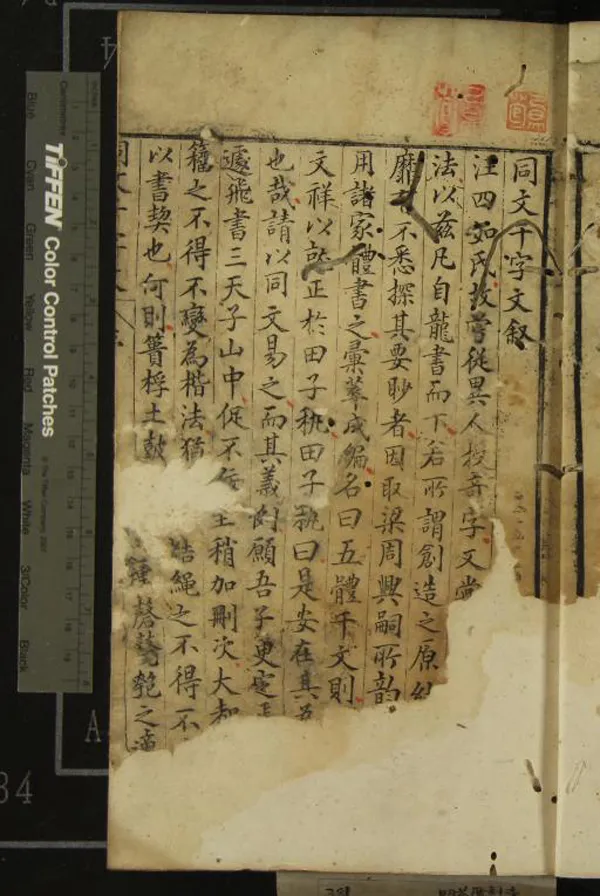 同文千字文叙
汪四如氏故嘗從異人授奇字又嘗
法以茲凡自龍書而下若所謂創造之原
靡不悉探其要眇者因取梁周興嗣所韵
用諸家體書之彙萃成編名曰五體千文則
文祥以就正於田子秇田子秇曰是安在其五
也哉請以同文易之而其義則顧吾子更定
遽飛書三天子山中促不佞稍加刪次大都
籒之不得不變為楷法猶結繩之不得不
以書契也何則蕢桴土鼓鍾磬鼗匏之
同文千字文
TIFFEN Color Control Patches
© The Tiffen Company, 2007
Centimetres
Inches
Blue
Cyan
Green
Yellow
Red
Magenta
White
3/Color
Black
A
4
34